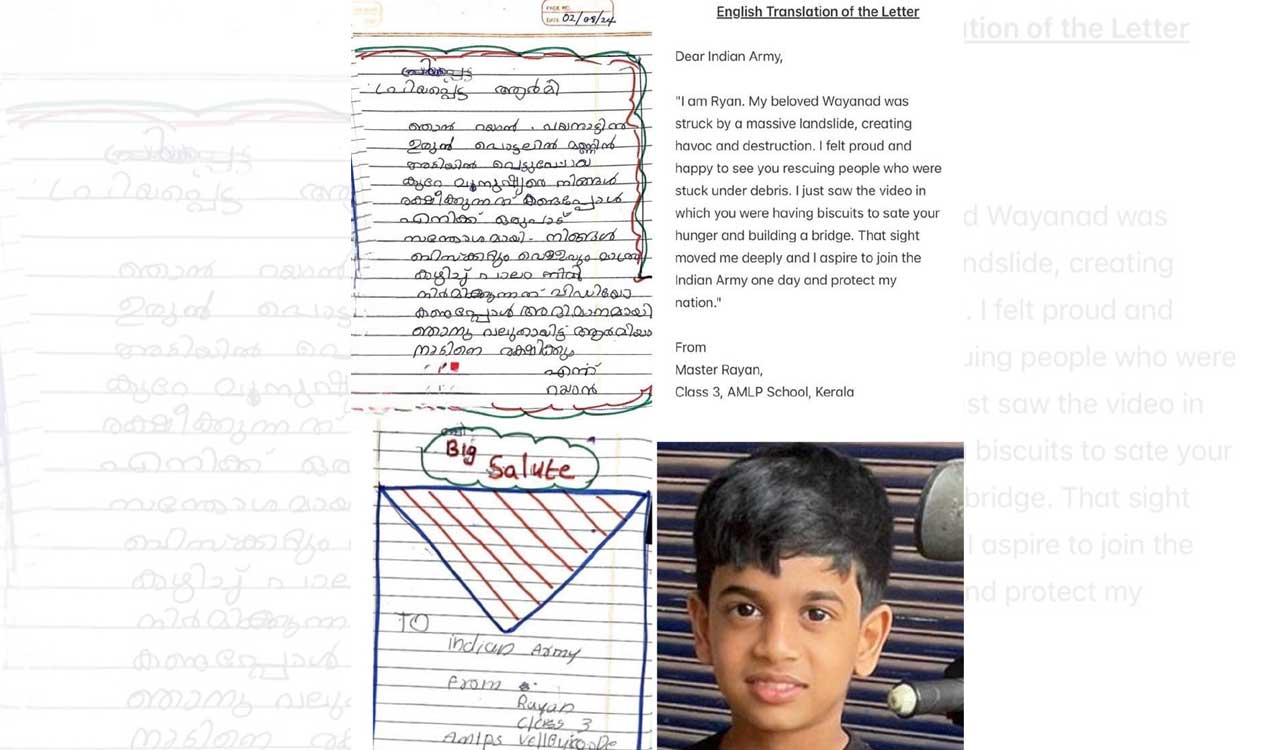 PAGE NO.
DATE 02/08/24
പ്രിയപ്പെട്ട ആർമി
ഞാൻ റയാൻ. വയനാട്ടിൽ
ഉരുൾ പൊട്ടലിൽ മണ്ണിൻ
അടിയിൽ പെട്ടുപോയ
കുറേ മനുഷ്യരെ നിങ്ങൾ
രക്ഷിക്കുന്നത് കണ്ടപ്പോൾ
എനിക്ക് ഒരുപാട്
സന്തോഷമായി. നിങ്ങൾ
ബിസ്ക്കറ്റും വെള്ളവും മാത്രം
കഴിച്ച് പാലം
നിർമിക്കുന്നത് വിഡിയോ
കണ്ടപ്പോൾ അഭിമാനമായി
ഞാനും വലുതായിട്ട്
നാടിനെ രക്ഷിക്കും
എന്ന്
റയാൻ
Big
Salute
TO
indian Army
From
Rayan
Class 3
Amlps
English Translation of the Letter
Dear Indian Army,
"I am Ryan. My beloved Wayanad was
struck by a massive landslide, creating
havoc and destruction. I felt proud and
happy to see you rescuing people who were
stuck under debris. I just saw the video in
which you were having biscuits to sate your
hunger and building a bridge. That sight
moved me deeply and I aspire to join the
Indian Army one day and protect my
nation."
From
Master Rayan,
Class 3, AMLP School, Kerala